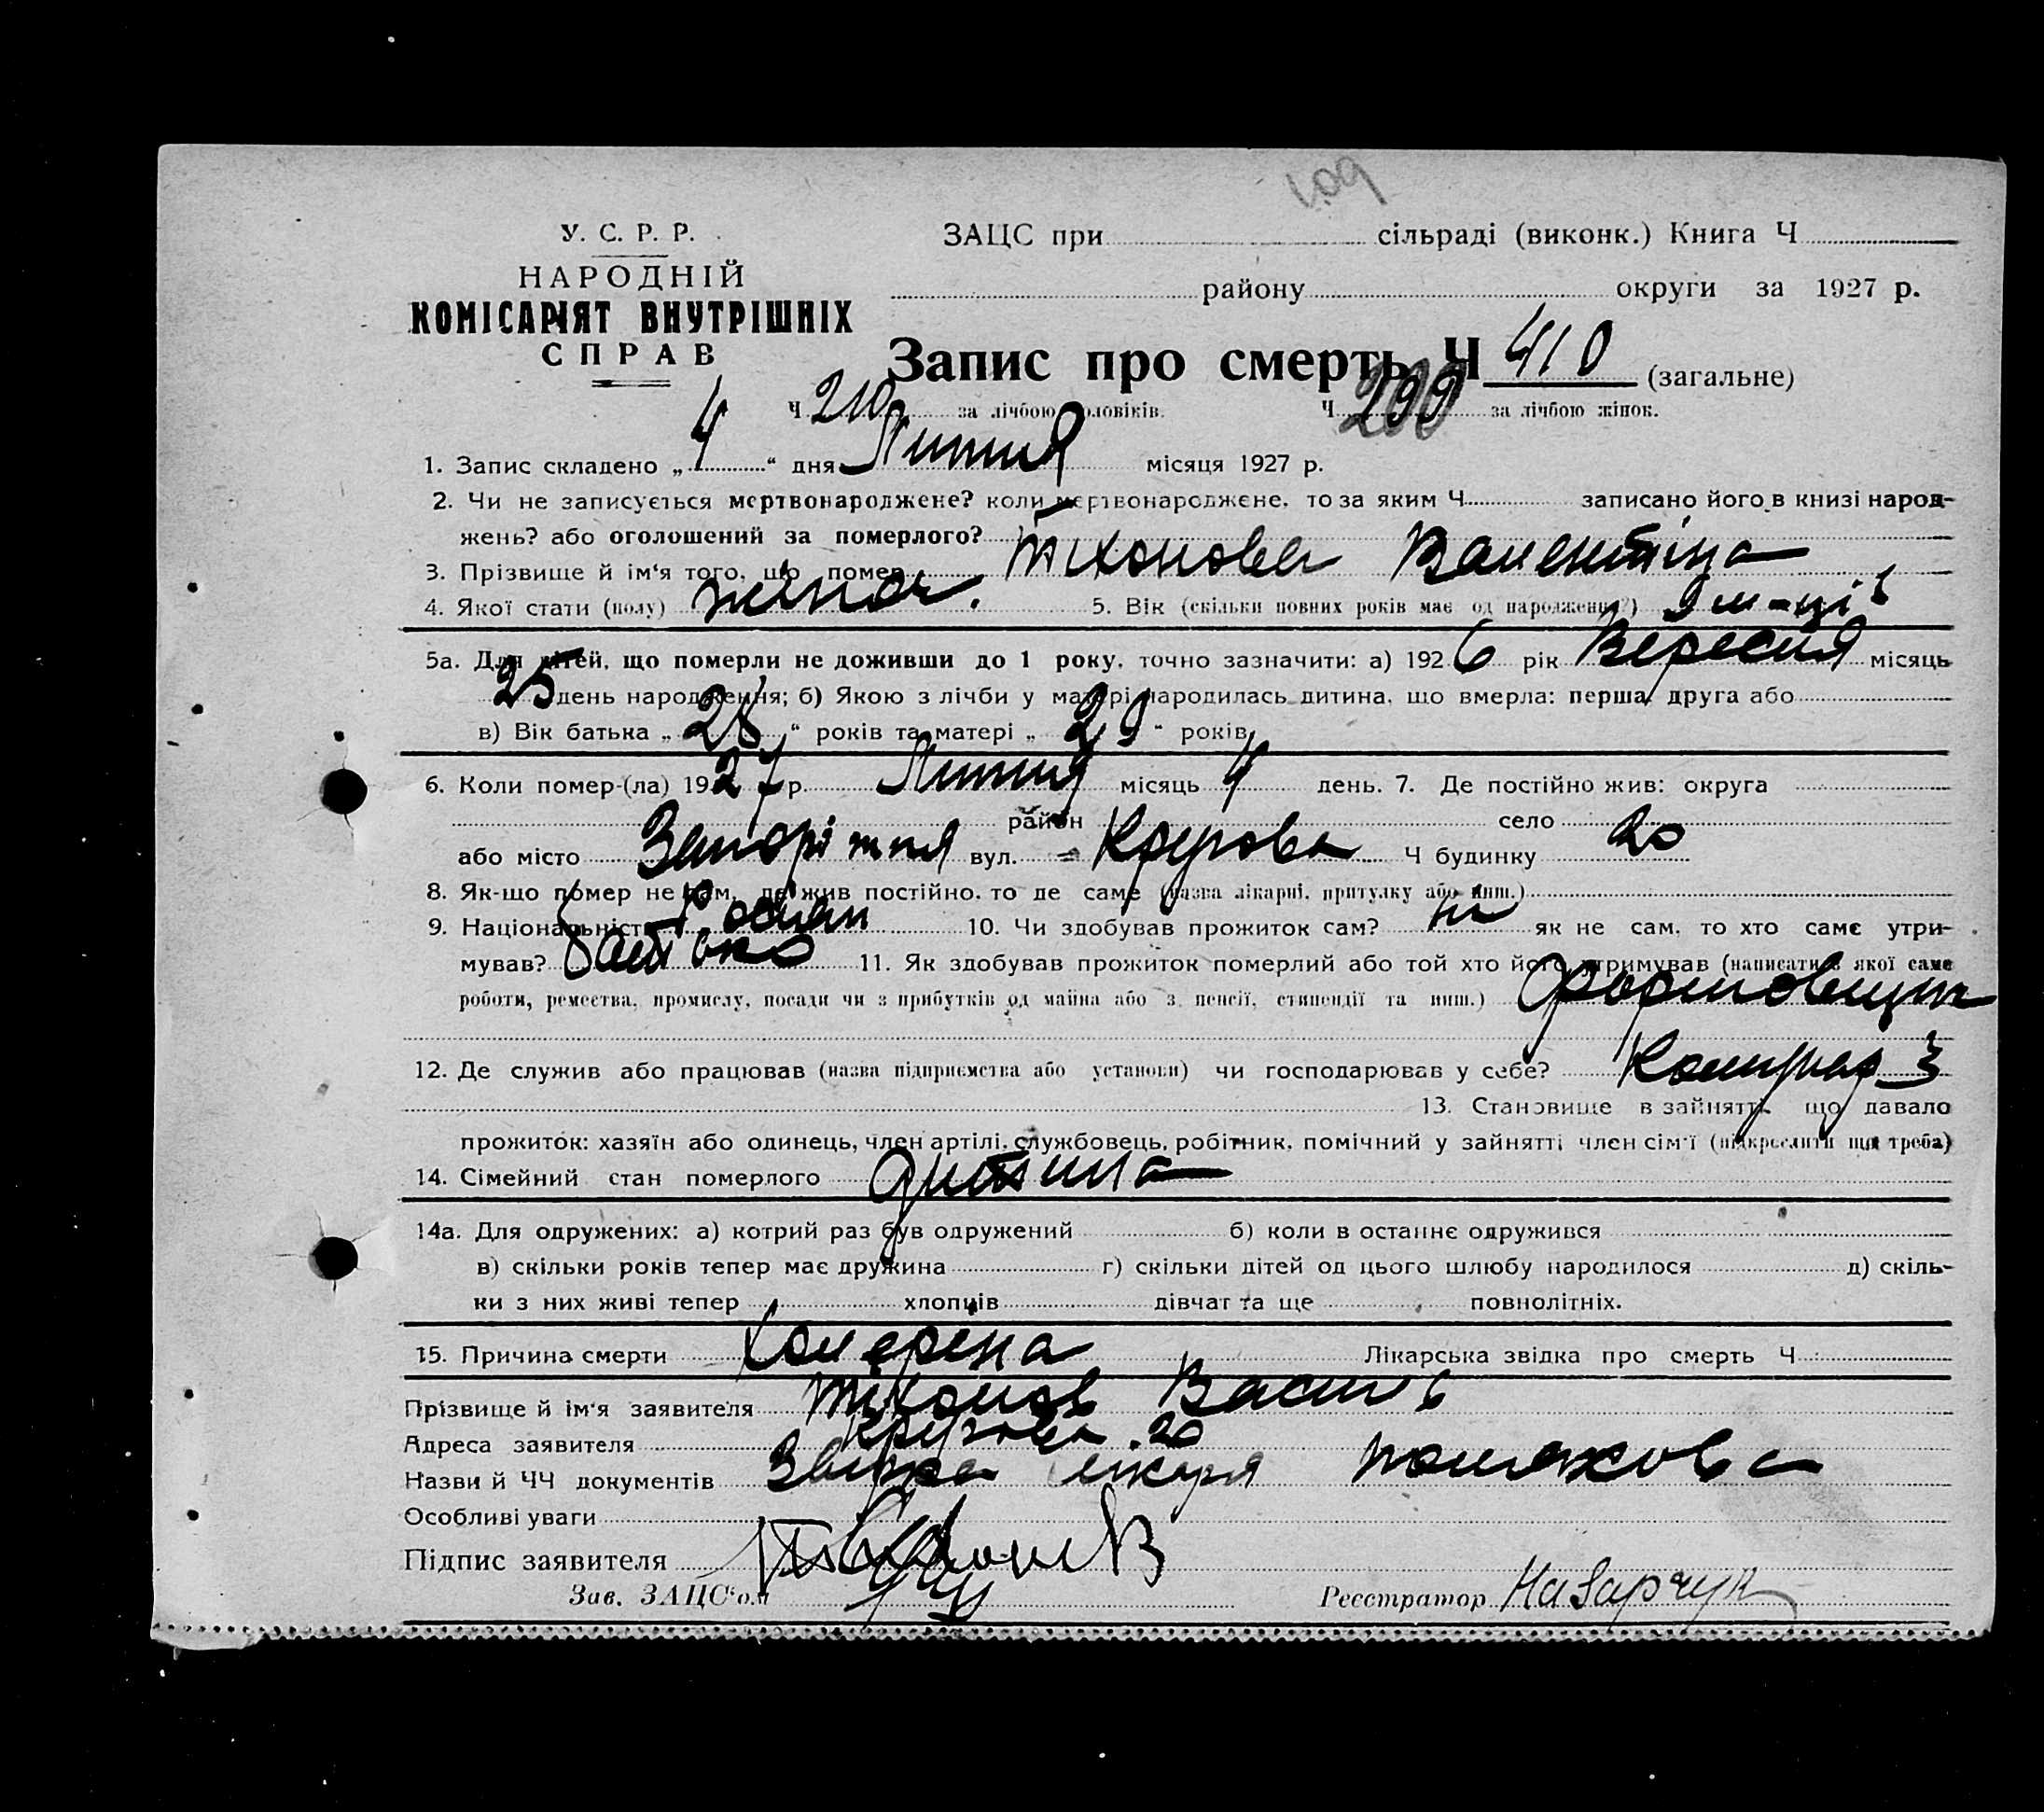 У. С. Р. Р.
НАРОДНІЙ
КОМІСАРІЯТ ВНУТРІШНІХ
СПРАВ
ЗАЦС при сільраді (виконк.) Книга Ч
району округи за 1927 р.
Запис про смерть Ч 410 (загальне)
Ч 210 за лічбою чоловіків. Ч 200 за лічбою жінок.
1. Запис складено „ 4 “ дня Липня місяця 1927 р.
2. Чи не записується мертвонароджене? коли мертвонароджене, то за яким Ч записано його в книзі народ-
жень? або оголошений за померлого?
3. Прізвище й ім‘я того, що помер Тіхонова Валентіна
4. Якої стати (полу) жіноч. 5. Вік (скільки повних років має од народження?) 9 м-ців
5а. Для дітей, що померли не доживши до 1 року, точно зазначити: а) 1926 рік Вересня місяць
25 день народження; б) Якою з лічби у матері народилась дитина, що вмерла: перша, друга або
в) Вік батька „ 28 “ років та матері „ 29 “ років
6. Коли помер-(ла) 1927 р. Липня місяць 4 день. 7. Де постійно жив: округа
район село
або місто Запоріжжя вул. Ч будинку 20
8. Як-що помер не там, де жив постійно, то де саме (назва лікарні, притулку або инш.)
9. Національність Росіян 10. Чи здобував прожиток сам? ні як не сам, то хто саме утри-
мував? батько 11. Як здобував прожиток померлий або той хто його утримував (написати з якої саме
роботи, ремества, промислу, посади чи з прибутків од майна або з пенсії, стипендії та инш.) Формовщик
12. Де служив або працював (назва підприємства або установи) чи господарював у себе? Комунар 3
13. Становище в зайнятті, що давало
прожиток: хазяїн або одинець, член артілі, службовець, робітник, помічний у зайнятті член сім‘ї (підкреслити що треба)
14. Сімейний стан померлого дитина
14а. Для одружених: а) котрий раз був одружений б) коли в останнє одружився
в) скільки років тепер має дружина г) скільки дітей од цього шлюбу народилося д) скіль-
ки з них живі тепер хлопців дівчат та ще повнолітніх.
15. Причина смерти Холеріна Лікарська звідка про смерть Ч
Прізвище й ім‘я заявителя Тіхонов Василь
Адреса заявителя 20
Назви й ЧЧ документів Звідка лікаря Полякова
Особливі уваги
Підпис заявителя
Зав. ЗАЦС‘ом Реєстратор Назарчук